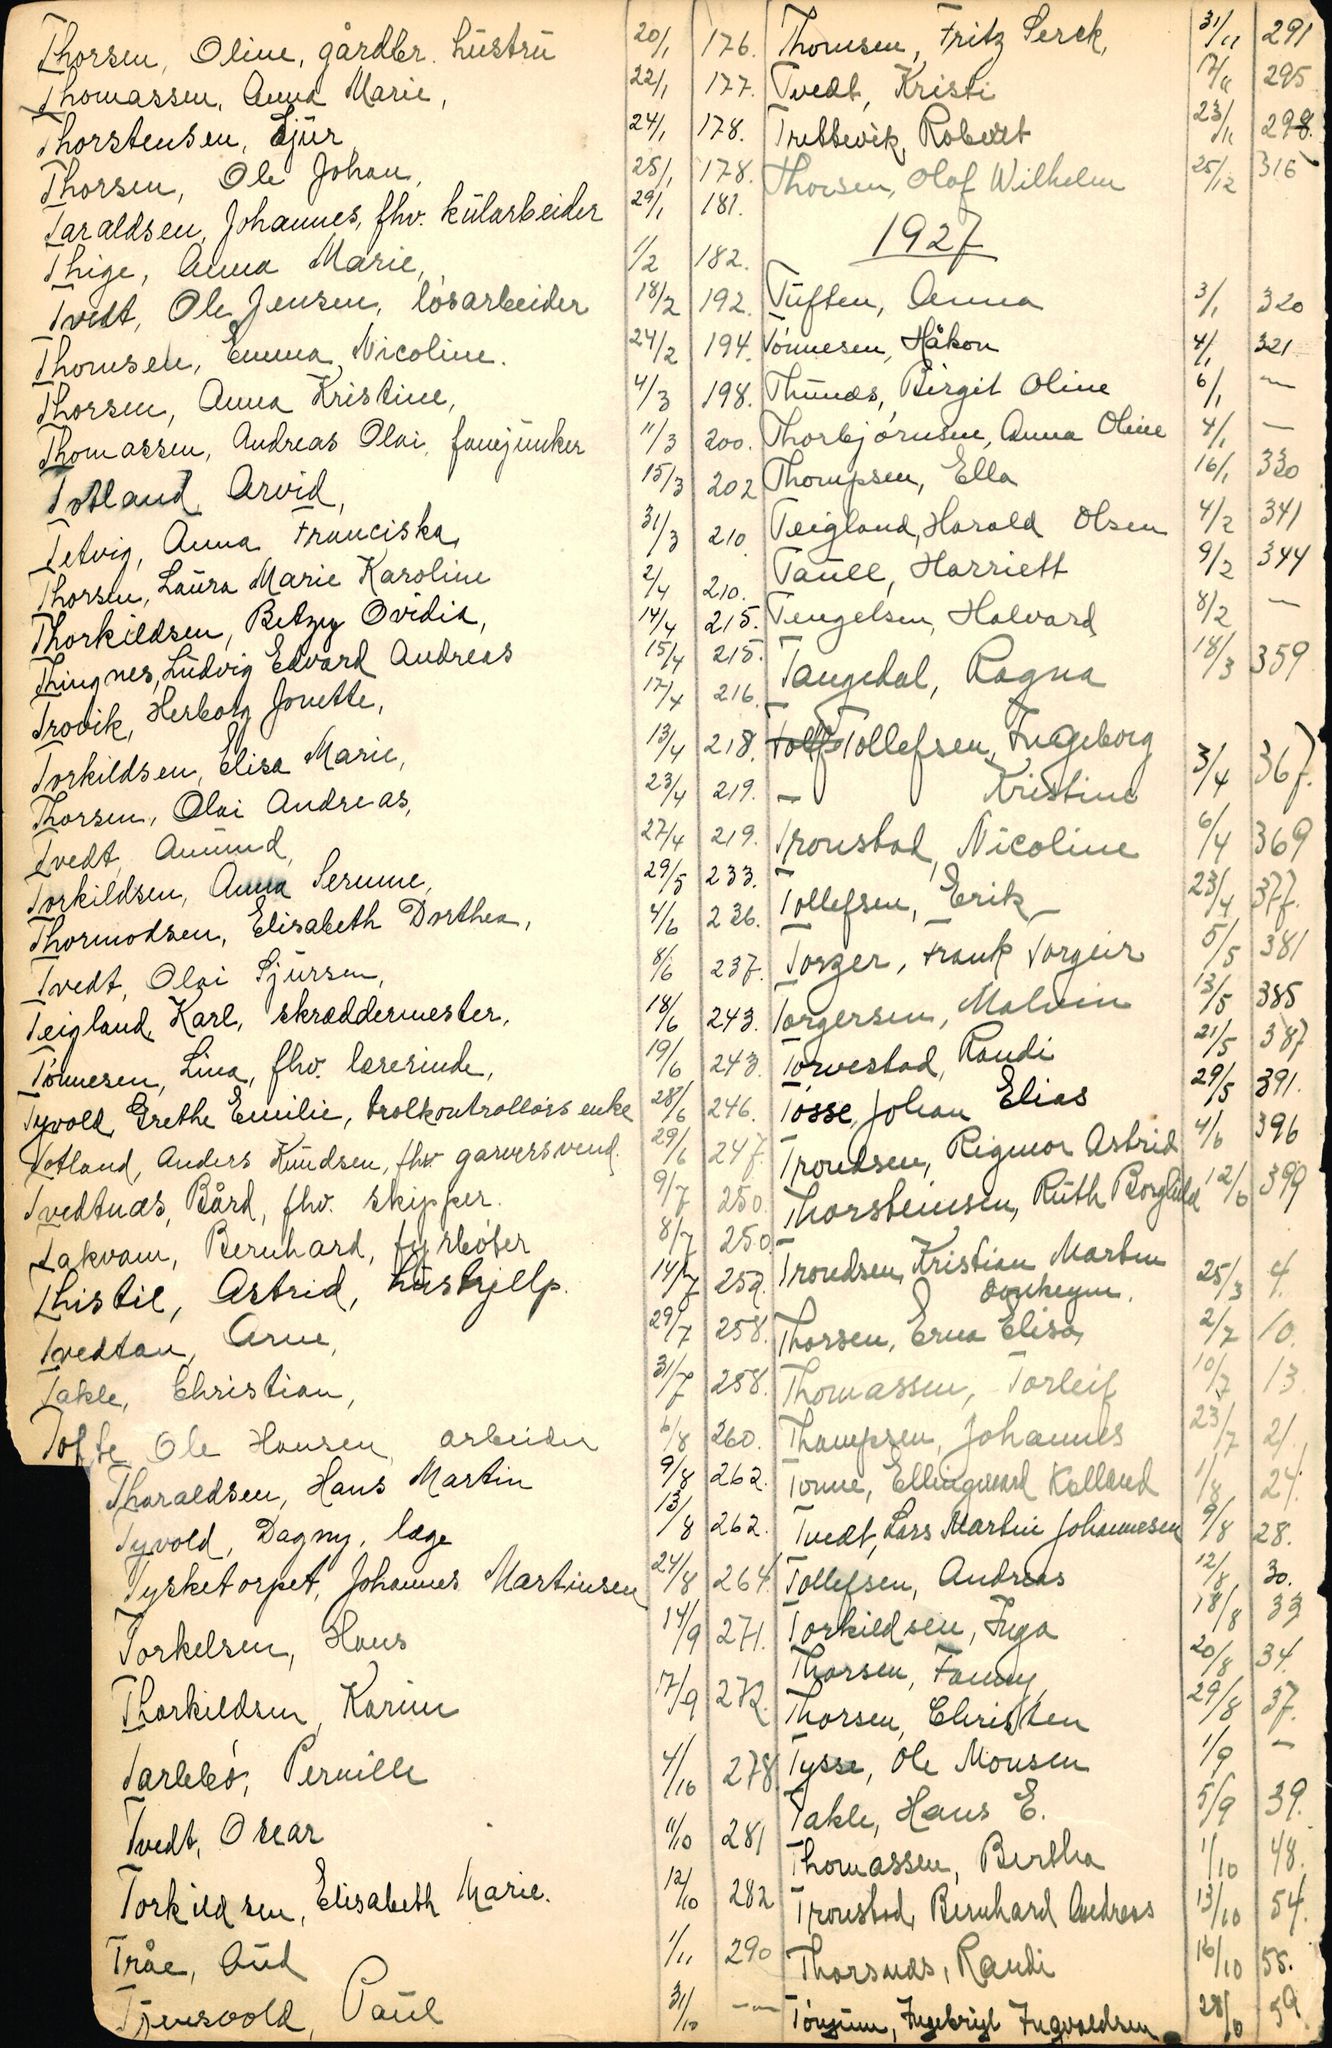 Thorsen, Oline, gårdbr. hustru 20/1 176.
Thomassen, Anna Marie, 22/1 177.
Thorstensen, Sjur 24/1 178.
Thorsen, Ole Johan, 25/1 178.
Taraldsen, Johannes, fhv. kularbeider 29/1 181.
Thige, Anna Marie, 1/2 182.
Tvedt, Ole Jensen, løsarbeider 18/2 192.
Thomsen, Emma Nicoline. 24/2 194.
Thorsen, Anna Kristine, 4/3 198.
Thomassen, Andreas Olai, fanejunker 11/3 200.
Totland, Arvid, 15/3 202
Tetvig, Anna Franciska, 31/3 210.
Thorsen, Laura Marie Karoline 2/4 210.
Thorkildsen, Betzy Ovidia, 14/4 215.
Thingnes, Ludvig Edvard Andreas 15/4 215.
Trovik, Herborg Jonette, 17/4 216.
Torkildsen, Elisa Marie, 13/4 218.
Thorsen, Olai Andreas, 23/4 219.
Tvedt, Amund, 27/4 219.
Torkildsen, Anna Serume, 29/5 233.
Thormodsen, Elisabeth Dorthea, 4/6 236.
Tvedt, Olai Sjursen, 8/6 237.
Teigland, Karl, skræddermester, 18/6 243.
Tønnesen, Lina, fhv. lærerinde, 19/6 243.
Tyvold, Grethe Emilie, tolkontrollørs enke 28/6 246.
Totland, Anders Knudsen, fhv. garversvend. 29/6 247.
Tvedtnæs, Bård, fhv. skipper. 9/7 250.
Takvam, Bernhard, fyrbøter 8/7 250.
Thistil, Astrid, hushjelp. 14/7 252.
Tvedtan, Arne, 29/7 258.
Takle, Christian, 31/7 258.
Tofte, Ole Hansen, arbeider 6/8 260.
Tharaldsen, Hans Martin 9/8 262.
Tyvold, Dagny, læge 13/8 262.
Tysketorpet, Johannes Martinsen 24/8 264.
Torkelsen, Hans 14/9 271.
Thorkildsen, Karin 17/9 272.
Tarlebø, Pernille 4/10 278
Tvedt, Oscar 11/10 281
Torkildsen, Elisabeth Marie. 12/10 282
Tråe, Aud 1/11 290
Tjensvold, Paul 31/10 --
Thomsen, Fritz Serck, 31/11 291
Tvedt, Kristi 17/11 295
Trettevik, Robert 23/11 298.
Thorsen, Olaf Wilhelm 25/12 316
1927
Tuften, Anna 3/1 320
Tønnesen, Håkon 4/1 321
Thunæs, Birgit Oline 6/1 —
Thorbjørnsen, Anna Oline 4/1 —
Thompsen, Ella 16/1 330
Teigland, Harald Olsen 4/2 341
Taule, Harriett 9/2 344
Tengelsen, Halvard 8/2 —
Tangedal, Ragna 18/3 359
Tollefsen, Ingeborg
— Kristine 3/4 367.
Tronstad, Nicoline 6/4 369
Tollefsen, Erik 23/4 377.
Torger, Frank Torgeir 5/5 381
Torgersen, Malvin 13/5 385
Torvestad, Randi 21/5 387
Tøsse, Johan Elias 29/5 391.
Trondsen, Rigmor Astrid 4/6 396
Thorsteinsen, Ruth Borghild 12/6 399
Trondsen, Kristian Martin 25/3 4.
Thorsen, Erna Elisa, 2/7 10.
Thomassen, Torleif 10/7 13.
Thompsen, Johannes 23/7 21.
Tonne, Ellingward Kalland 1/8 24.
Tvedt, Lars Martin Johannesen 9/8 28.
Tollefsen, Andreas 12/8 30.
Torkildsen, Inga 18/8 33
Thorsen, Fanny, 20/8 34.
Thorsen, Christen 29/8 37.
Tysse, Ole Monsen 1/9 —
Takle, Hans E. 5/9 39.
Thomassen, Bertha 1/10 48.
Tronstad, Bernhard Andreas 13/10 54.
Thorsnæs, Randi 16/10 55.
Tønjum, Ingebrigt Ingvaldsen 28/10 59